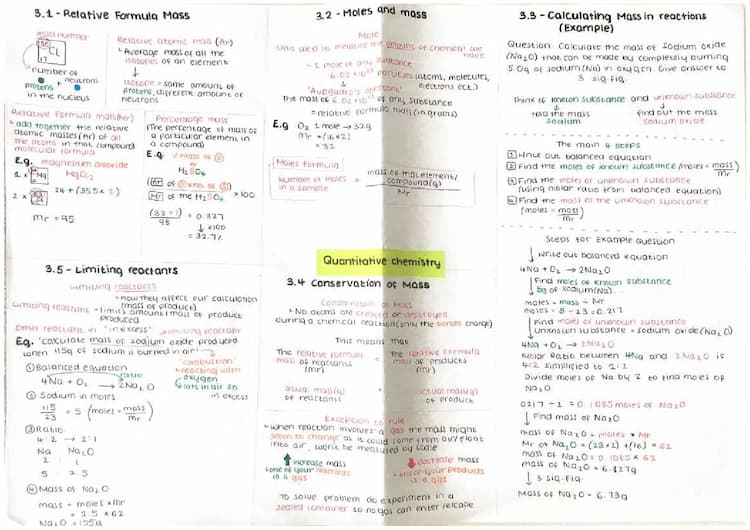 3.1 - Relative Formula Mass
mass number
Cl
17
number of
protons + neutrons
in the nucleus
Relative atomic mass (Ar)
Average mass of all the
isotopes of an element
isotope = same amount of
protons, different amount of
neutrons
Relative formula mass (Mr)
add together the relative
atomic masses (Ar) of all
the atoms in that compound
molecular formula
E.g. magnesium chloride
MgCl2
1 x Mg
24 + (35.5 x 2)
2 x
Mr = 95
Percentage mass
(The percentage of mass of
a particular element in
a compound)
E.g. % mass of S
H2SO4
Ar of S x no. of S
Mr of the H2SO4 x 100
(32 x 1)
98
= 0.327
x100
= 32.7%
3.2 - Moles and mass
Mole
Unit used to measure the amounts of chemical we
have
1 mole of any substance
6.02 x10²³ particles (atoms, molecules,
electrons ect.)
'Avogadro's constant'
The mass of 6.02 x10²³ of any substance
= relative formula mass (in grams)
E.g O2 1 mole → 32g
Mr = (16 x 2)
= 32
Moles formula
Number of moles
in a sample
=
mass of the element/
compound (g)
Mr
Quantitative chemistry
3.3 - Calculating Mass in reactions
(Example)
Question: Calculate the mass of sodium oxide
(Na2O) that can be made by completely burning
5.0g of sodium (Na) in oxygen. Give answer to
3 sig.fig.
Think of known substance and unknown substance
told the mass
sodium
find out the mass
sodium oxide
The main 4 steps
1 Write out balanced equation
2 Find the moles of known substance (moles = mass/mr)
3 Find the moles of unknown substance
(using molar ratio from balanced equation)
4 Find the mass of the unknown substance
(moles = mass/mr)
Steps for Example question
Write out balanced equation
4Na + O2 → 2Na2O
Find moles of known substance
5g of sodium (Na)
moles = mass ÷ Mr
moles = 5 ÷ 23 = 0.217
Find moles of unknown substance
unknown substance = sodium oxide (Na2O)
4Na + O2 → 2Na2O
Molar Ratio between 4Na and 2Na2O is
4:2 simplified to 2:1
Divide moles of Na by 2 to find moles of
Na2O
0.217 ÷ 2 = 0.1085 moles of Na2O
Find mass of Na2O
mass of Na2O = moles x Mr
Mr of Na2O = (23x2) + (16) = 62
mass of Na2O = 0.1085 x 62
mass of Na2O = 6.727g
3 sig.fig.
Mass of Na2O = 6.73g
3.5 - Limiting reactants
Limiting reactants
how they affect our calculation
(mass of product)
Limiting reactant - limits amount / mass of product
produced
Other reactant in 'in excess' limiting reactant
Eg. 'calculate mass of sodium oxide produced
when 115g of sodium is burned in air'
'combustion'
reacting with
oxygen
lots in air so
in excess
① Balanced equation
ratio
4Na + O2 → 2Na2O
② Sodium in moles
115
23
= 5 (moles = mass/mr)
③ Ratio
4:2 → 2:1
Na : Na2O
2 : 1
5 : 2.5
④ Mass of Na2O
mass = moles x Mr
= 2.5 x 62
Na2O = 155g
3.4 Conservation of Mass
Conservation of Mass
No atoms are created or destroyed
during a chemical reaction (only the bonds change)
This means that
The relative formula
mass of reactants
(Mr)
=
The relative formula
mass of products
(Mr)
actual mass (g)
of reactants
=
actual mass (g)
of product
Exception to rule
when reaction involves a gas the mass might
seem to change as it could come from air/float
into air, won't be measured by scale
increase mass
one of your reactants
is a gas
decrease mass
one of your products
is a gas
To solve problem do experiment in a
sealed container so no gas can enter/escape